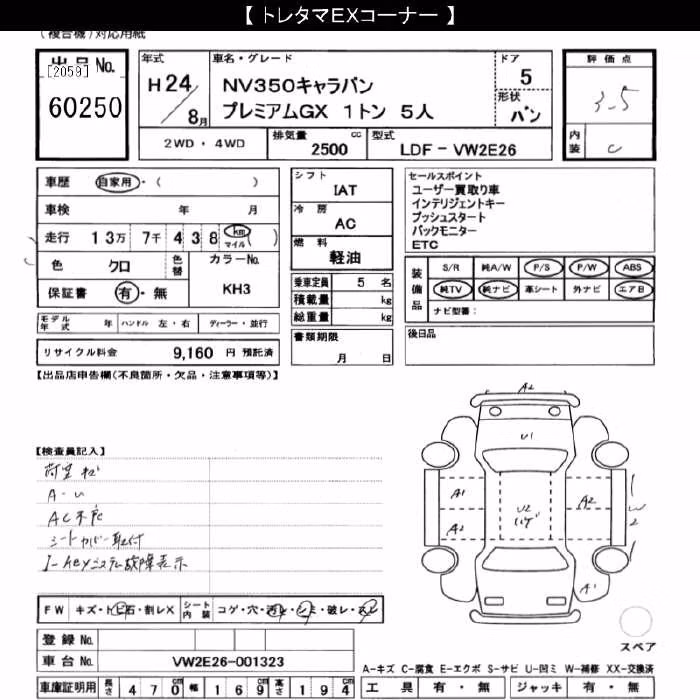 【 トレタマEXコーナー 】
(複合機)対応用紙
出品No.
[2059]
60250
年式
H24/8月
車名・グレード
NV350キャラバン
プレミアムGX 1トン 5人
ドア
5
形状
バン
評価点
3.5
内装
C
2WD・4WD
排気量 2500 cc
型式 LDF-VW2E26
車歴 自家用・( )
車検 年 月
走行 13万 7千 438 km マイル ( )
色 クロ 色替
カラーNo. KH3
保証書 有・無
シフト
IAT
冷房
AC
燃料
軽油
乗車定員 5 名
積載量 kg
総重量 kg
書類期限
月 日
セールスポイント
ユーザー買取り車
インテリジェントキー
プッシュスタート
バックモニター
ETC
装備品
S/R 純A/W P/S P/W ABS
純TV 純ナビ 革シート 外ナビ エアB
ナビ型番:
後日品
モデル年式 年 ハンドル 左・右 ディーラー・並行
リサイクル料金 9,160 円 預託済
【出品店申告欄(不良箇所・欠品・注意事項等)】
【検査員記入】
荷室キズ
A-U
AC不良
シートカバー取付
I-Keyシステム故障表示
A2
U1
A1
A2
U2
A2
W2
A1
スペア
FW キズ・トビ石・割レX シート内装 コゲ・穴・汚レ・シミ・破レ・スレ
登録No.
車台No. VW2E26-001323
車庫証明用 長さ 470 cm 幅 169 cm 高さ 194 cm
A-キズ C-腐食 E-エクボ S-サビ U-凹ミ W-補修 XX-交換済
工具 有・無 ジャッキ 有・無